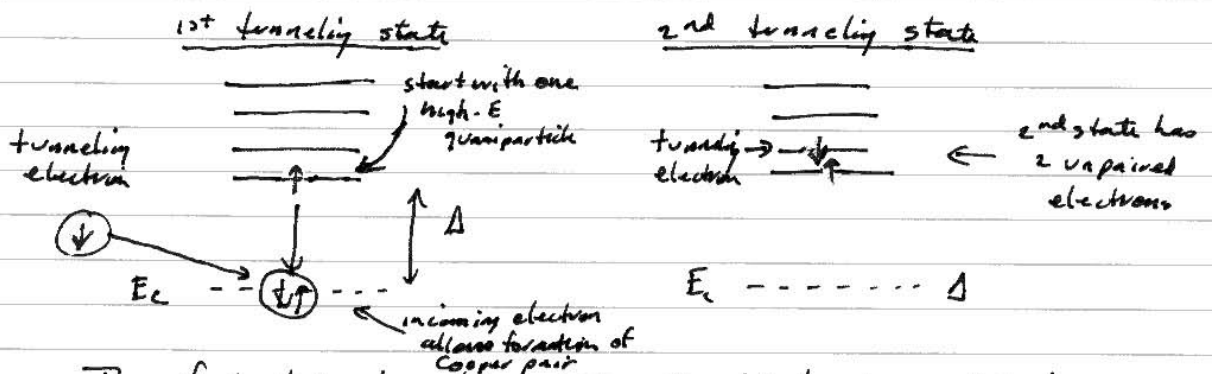 1st tunneling state
2nd tunneling state
start with one
high-E
quasiparticle
tunneling
electron
Δ
E_c
incoming electron
allows formation of
Cooper pair
tunneling
electron
2nd state has
2 unpaired
electrons
E_c
Δ